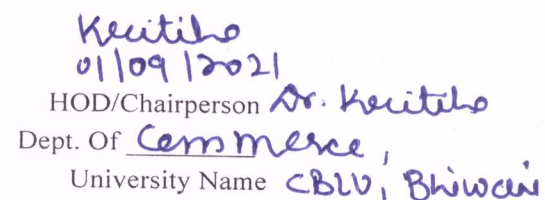 01/09/2021
HOD/Chairperson Dr.
Dept. Of Commerce,
University Name CBLU, Bhiwani